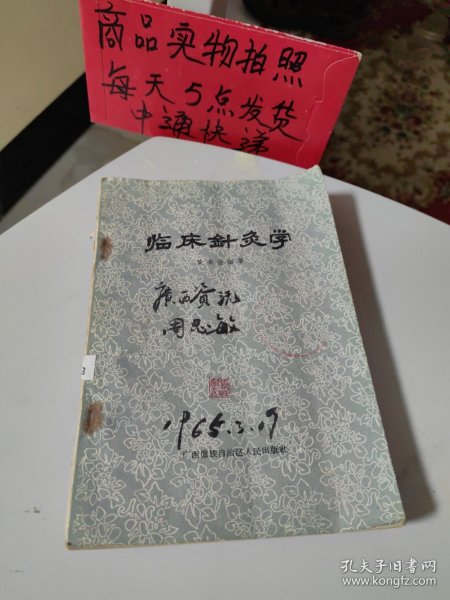 商品实物拍照
每天5点发货
中通快递
临床針灸学
广西资沅
周思敏
1965.3.19
广西僮族自治区人民出版社
孔夫子旧书网
www.kongfz.com